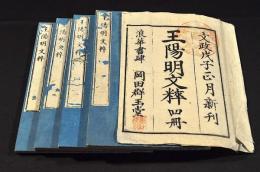 文政戊子正月新刊
王陽明文粹 四冊
浪華書肆 岡田群玉堂
王陽明文粹
王陽明文粹
王陽明文粹
王陽明文粹